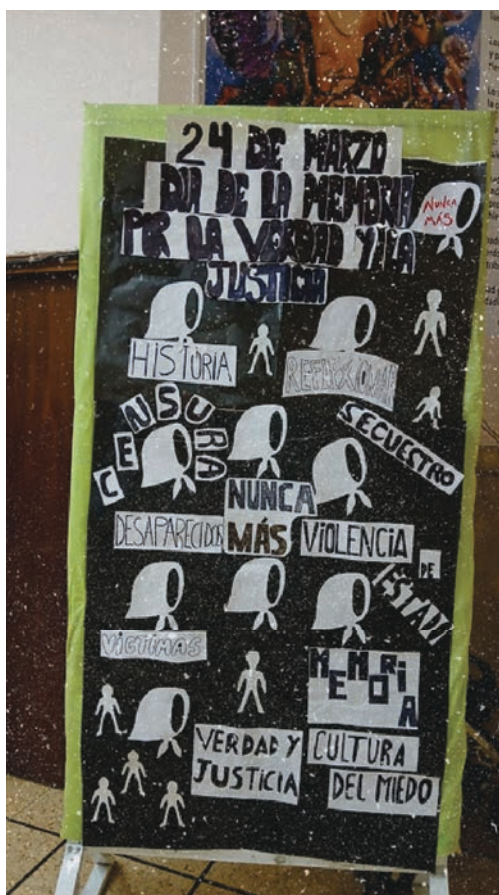 24 DE MARZO
DIA DE LA MEMORIA
POR LA VERDAD Y LA
JUSTICIA
NUNCA
MÁS
HISTORIA
REFLEXIONAR
CENSURA
SECUESTRO
NUNCA
MÁS
DESAPARECIDOS
VIOLENCIA
DE
ESTADO
VICTIMAS
MEMORIA
VERDAD Y
JUSTICIA
CULTURA
DEL MIEDO